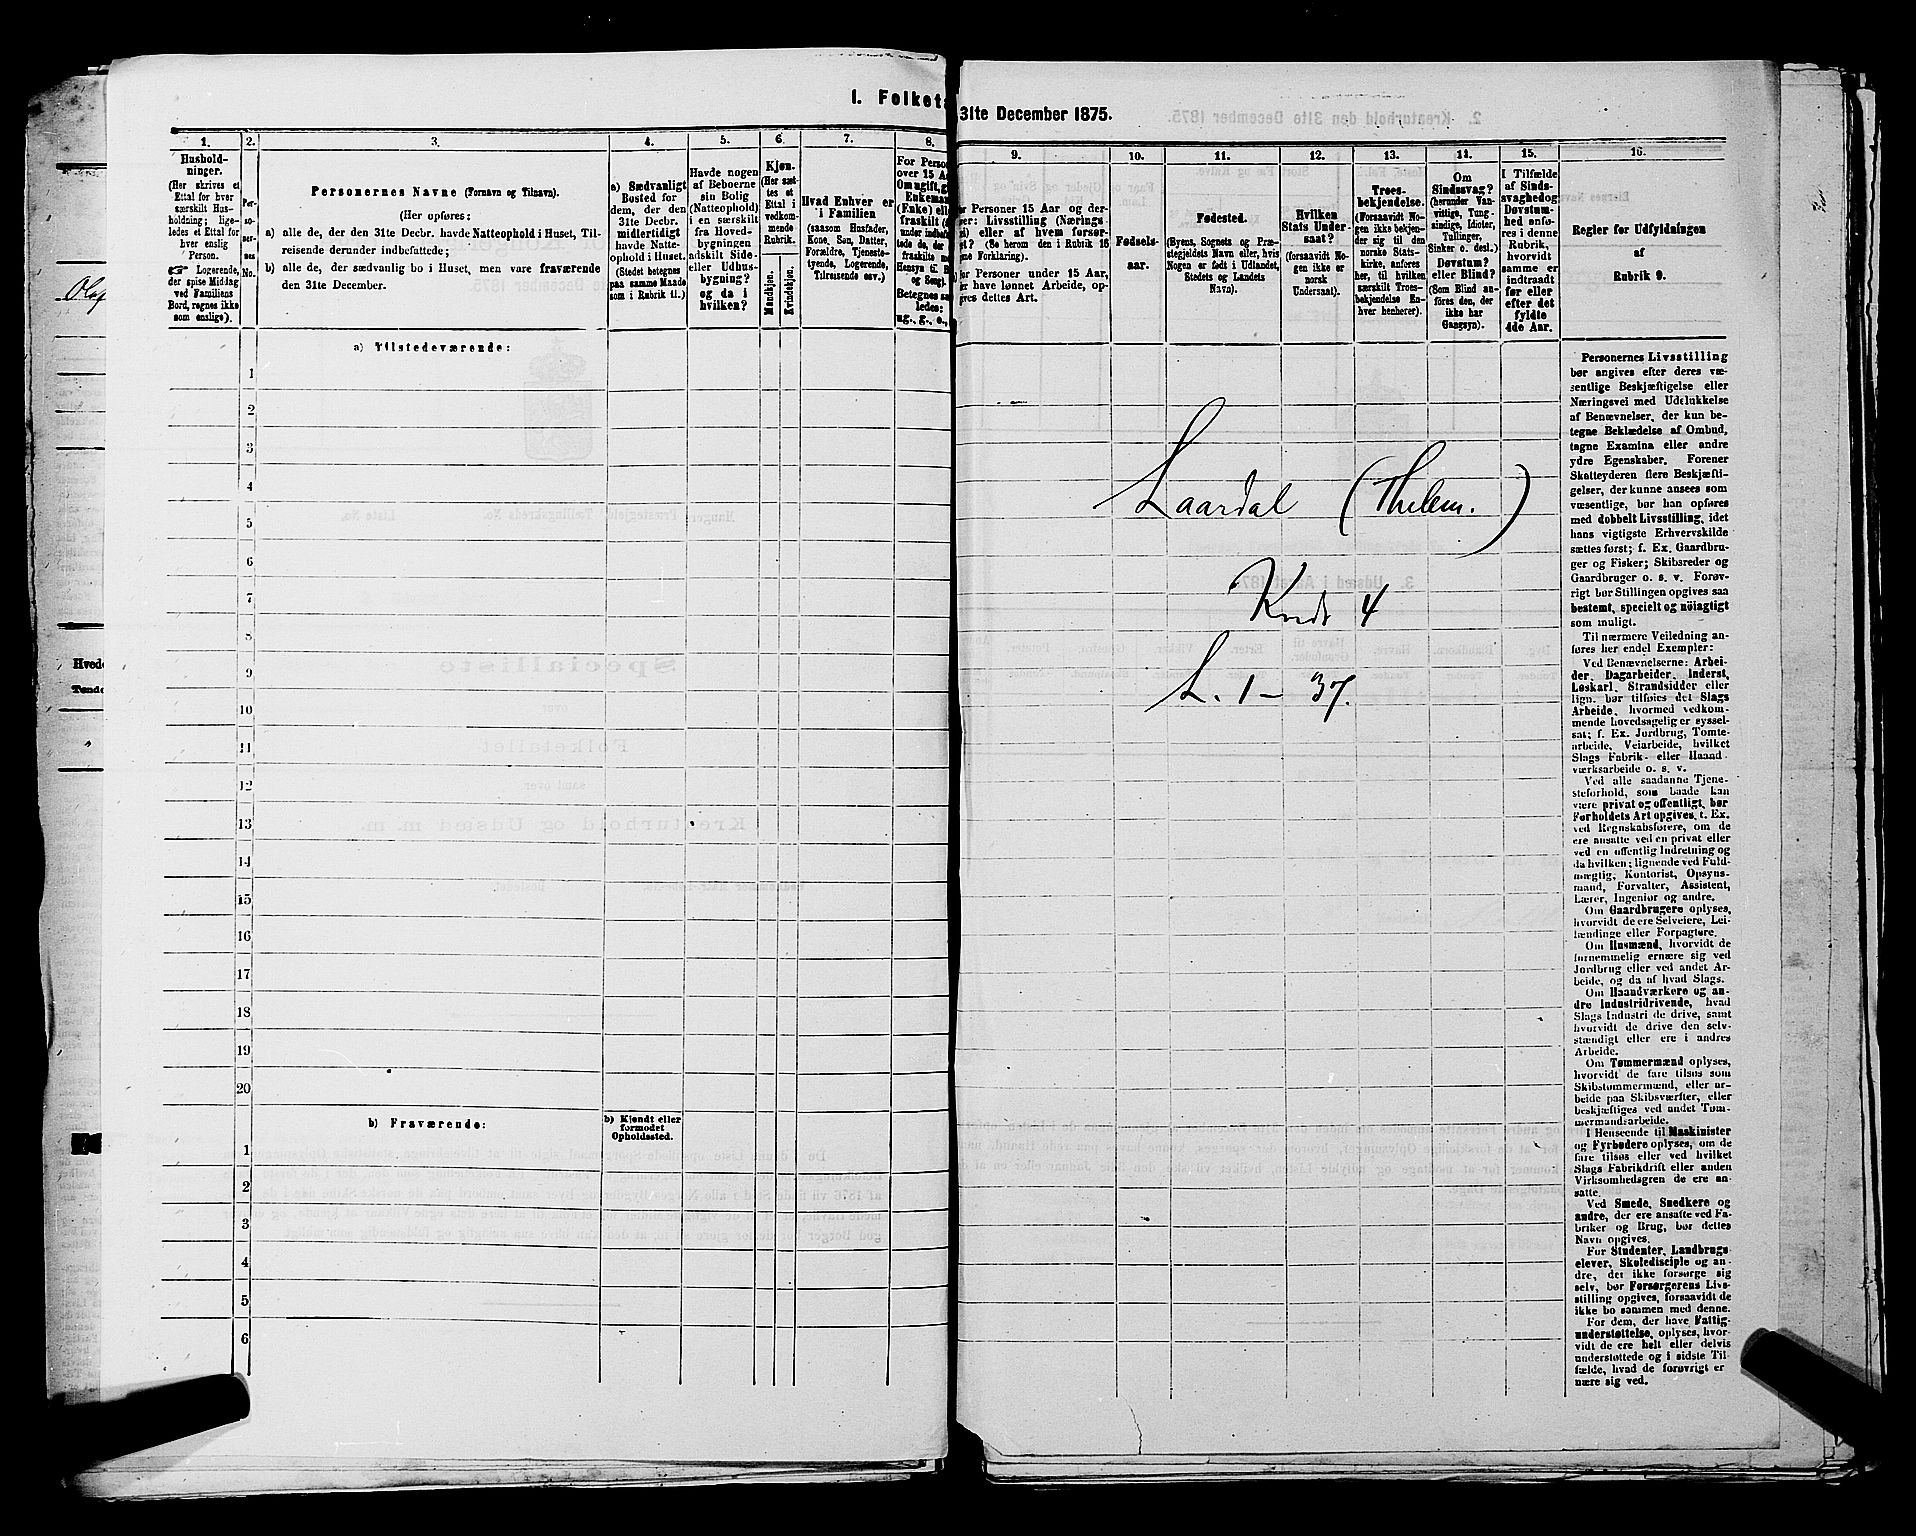 I. Folketæ
31te December 1875.
1.
Hushold-
ninger.
(Her skrives et
Ettal for hver
særskilt Hus-
holdning; lige-
ledes et Ettal for
hver enslig
Person.
☞ Logerende,
der spise Middag
ved Familiens
Bord, regnes ikke
som enslige).
2.
Per-
so-
ner-
nes
No.
3.
Personernes Navne (Fornavn og Tilnavn).
(Her opføres:
a) alle de, der den 31te Decbr. havde Natteophold i Huset, Til-
reisende derunder indbefattede;
b) alle de, der sædvanlig bo i Huset, men vare fraværende
den 31te December.
4.
a) Sædvanligt
Bosted for
dem, der den
31te Decbr.
midlertidigt
havde Natte-
ophold i Huset.
(Stedet betegnes
paa samme Maade
som i Rubrik 11.)
5.
Havde nogen
af Beboerne
sin Bolig
(Natteophold)
i en særskilt
fra Hoved-
bygningen
adskilt Side-
eller Udhus-
bygning?
og da i
hvilken?
6.
Kjøn.
(Her sæt-
tes et
Ettal i
vedkom-
mende
Rubrik.
Mandkjøn.
Kvindekjøn.
7.
Hvad Enhver er
i Familien
(saasom Husfader,
Kone, Søn, Datter,
Forældre, Tjeneste-
tyende, Logerende,
Tilreisende osv.)
8.
For Person
over 15 Aa
Om ugift, g
Enkeman
(Enke) elle
fraskilt
Betegnes sa
ledes:
ug., g., e.,
9.
or Personer 15 Aar og der-
er: Livsstilling (Nærings
) eller af hvem forsør-
get? (Se herom den i Rubrik 16
ne Forklaring).
or Personer under 15 Aar,
har have lønnet Arbeide, op-
gives dettes Art.
10.
Fødsels-
aar.
11.
Fødested.
(Byens, Sognets og Præ-
stegjeldets Navn eller, hvis
Nogen er født i Udlandet,
Stedets og Landets
Navn).
12.
Hvilken
Stats Under-
saat?
(forsaavidt No-
gen ikke er
norsk
Undersaat).
13.
Troes-
bekjendelse.
(Forsaavidt No-
gen ikke bekjen-
der sig til den
norske Stats-
kirke, anføres
her, til hvilken
særskilt Troes-
bekjendelse En-
hver henhører).
14.
Om
Sindssvag?
(herunder Van-
vittige, Tung-
sindige, Idioter,
Tullinger,
Sinker o. desl.)
Døvstum?
eller Blind?
(Som Blind an-
føres den, der
ikke har
Gangsyn).
15.
I Tilfælde
af Sinds-
svaghed og
Døvstum-
hed anfø-
res i denne
Rubrik,
hvorvidt
samme er
indtraadt
før eller
efter det
fyldte
4de Aar.
16.
Regler for Udfyldningen
af
Rubrik 9.
a) Tilstedeværende:
1
2
3
4
5
6
7
8
9
10
11
12
13
14
15
16
17
18
19
20
b) Fraværende:
b) Kjendt eller
formodet
Opholdssted.
1
2
3
4
5
6
Laardal (Thelem.)
Kreds 4
L. 1 - 37.
Personernes Livsstilling
bør angives efter deres væ-
sentlige Beskjæftigelse eller
Næringsvei med Udelukkelse
af Benævnelser, der kun be-
tegne Beklædelse af Ombud,
tagne Examina eller andre
ydre Egenskaber. Forener
Skatteyderen flere Beskjæfti-
gelser, der kunne ansees som
væsentlige, bør han opføres
med dobbelt Livsstilling, idet
hans vigtigste Erhvervskilde
sættes først; f. Ex. Gaardbru-
ger og Fisker; Skibsreder og
Gaardbruger o. s. v. Forøv-
rigt bør Stillingen opgives saa
bestemt, specielt og nöiagtigt
som muligt.
Til nærmere Veiledning an-
føres her endel Exempler:
Ved Benævnelserne: Arbei-
der, Dagarbeider, Inderst,
Løskarl, Strandsidder eller
lign. bør tilføies det Slags
Arbeide, hvormed vedkom-
mende hovedsagelig er syssel-
sat; f. Ex. Jordbrug, Tomte-
arbeide, Veiarbeide, hvilket
Slags Fabrik- eller Haand-
værksarbeide o. s. v.
Ved alle saadanne Tjene-
steforhold, som baade kan
være privat og offentligt, bør
Forholdets Art opgives, t. Ex.
ved Regnskabsførere, om de
ere ansatte ved en privat eller
ved en offentlig Indretning og
da hvilken; lignende ved Fuld-
mægtig, Kontorist, Opsyns-
mand, Forvalter, Assistent,
Lærer, Ingeniør og andre.
Om Gaardbrugere oplyses,
hvorvidt de ere Selveiere, Lei-
lændinge eller Forpagtere.
Om Husmænd, hvorvidt de
fornemmelig ernære sig ved
Jordbrug eller ved andet Ar-
beide, og da af hvad Slags.
Om Haandværkere og an-
dre Industridrivende, hvad
Slags Industri de drive, samt
hvorvidt de drive den selv-
stændigt eller ere i andres
Arbeide.
Om Tømmermænd oplyses,
hvorvidt de fare tilsøs som
Skibstømmermænd, eller ar-
beide paa Skibsværfter, eller
beskjæftiges ved andet Tøm-
mermandsarbeide.
I Henseende til Maskinister
og Fyrbødere oplyses, om de
fare tilsøs eller ved hvilket
Slags Fabrikdrift eller anden
Virksomhedsgren de ere an-
satte.
Ved Smede, Snedkere og
andre, der ere ansatte ved Fa-
briker og Brug, bør dettes
Navn opgives.
For Studenter, Landbrugs-
elever, Skoledisciple og an-
dre, der ikke forsørge sig
selv, bør Forsørgerens Livs-
stilling opgives, forsaavidt de
ikke bo sammen med denne.
For dem, der have Fattig-
understøttelse, oplyses, hvor-
vidt de ere helt eller delvis
understøttede og i sidste Til-
fælde, hvad de forøvrigt er
nære sig ved.